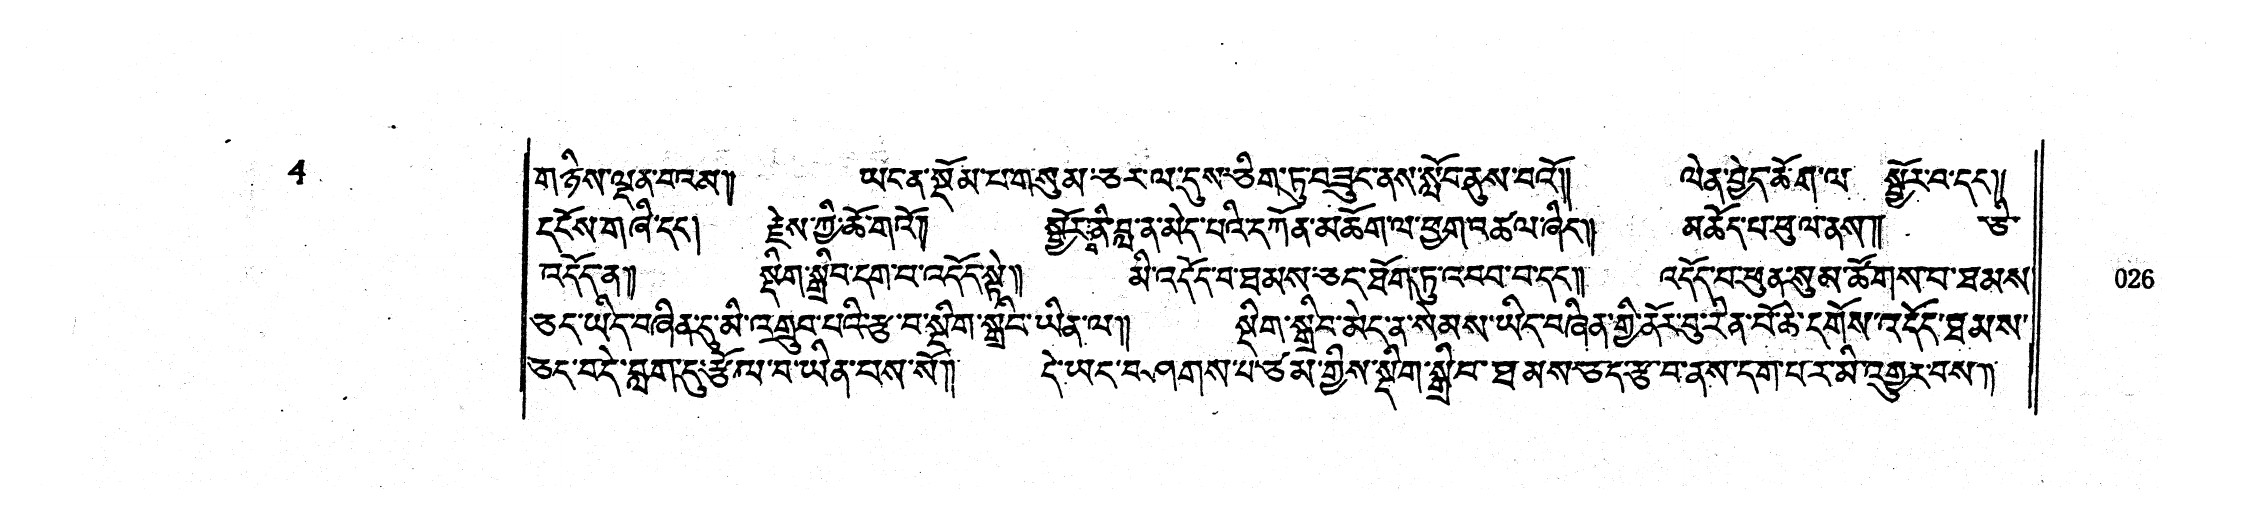 གཉིས་ལྡན་བའམ༎ ཡང་ན་སྡོམ་པ་གསུམ་ཅར་ལ་དུས་ཅིག་ཏུ་བཟུང་ནས་སློབ་ནུས་བའོ༎ ལེན་བྱེད་ཆོ་ག་ལ སྦྱོར་བ་དང་༎
དངོས་གཞི་དང་། རྗེས་ཀྱི་ཆོ་གའོ༎ སྦྱོར་ནི་བླ་ན་མེད་པའི་དཀོན་མཆོག་ལ་ཕྱག་འཚལ་ཞིང་༎ མཆོད་པ་ཕུལ་ནས༎ ཅི་
འདོད་ན༎ སྡིག་སྒྲིབ་དག་པ་འདོད་སྟེ༎ མི་འདོད་བ་ཐམས་ཅད་ཐོག་ཏུ་འབབ་བ་དང་༎ འདོད་བ་ཕུན་སུམ་ཚོགས་བ་ཐམས
ཅད་ཡིད་བཞིན་དུ་མི་འགྲུབ་པའི་རྩ་བ་སྡིག་སྒྲིབ་ཡིན་ལ༎ སྡིག་སྒྲིབ་མེད་ན་སེམས་ཡིད་བཞིན་གྱི་ནོར་བུ་རིན་པོ་ཆེ་དགོས་འདོད་ཐམས་
ཅད་བདེ་བླག་ཏུ་རྩོལ་བ་ཡིན་བས་སོ༎ དེ་ཡང་བཤགས་པ་ཙམ་གྱིས་སྡིག་སྒྲིབ་ཐམས་ཅད་རྩ་བ་ནས་དག་པར་མི་འགྱུར་བས༎
4
026